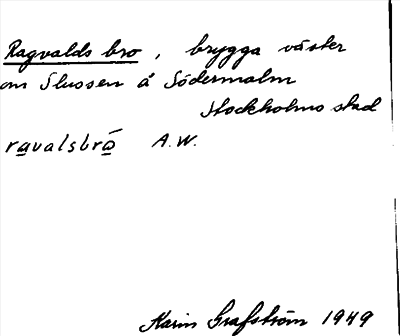 Ragvalds bro, brygga väster
om Slussen å Södermalm
Stockholms stad
ravalsbró A.W.
Karin Grafström 1949